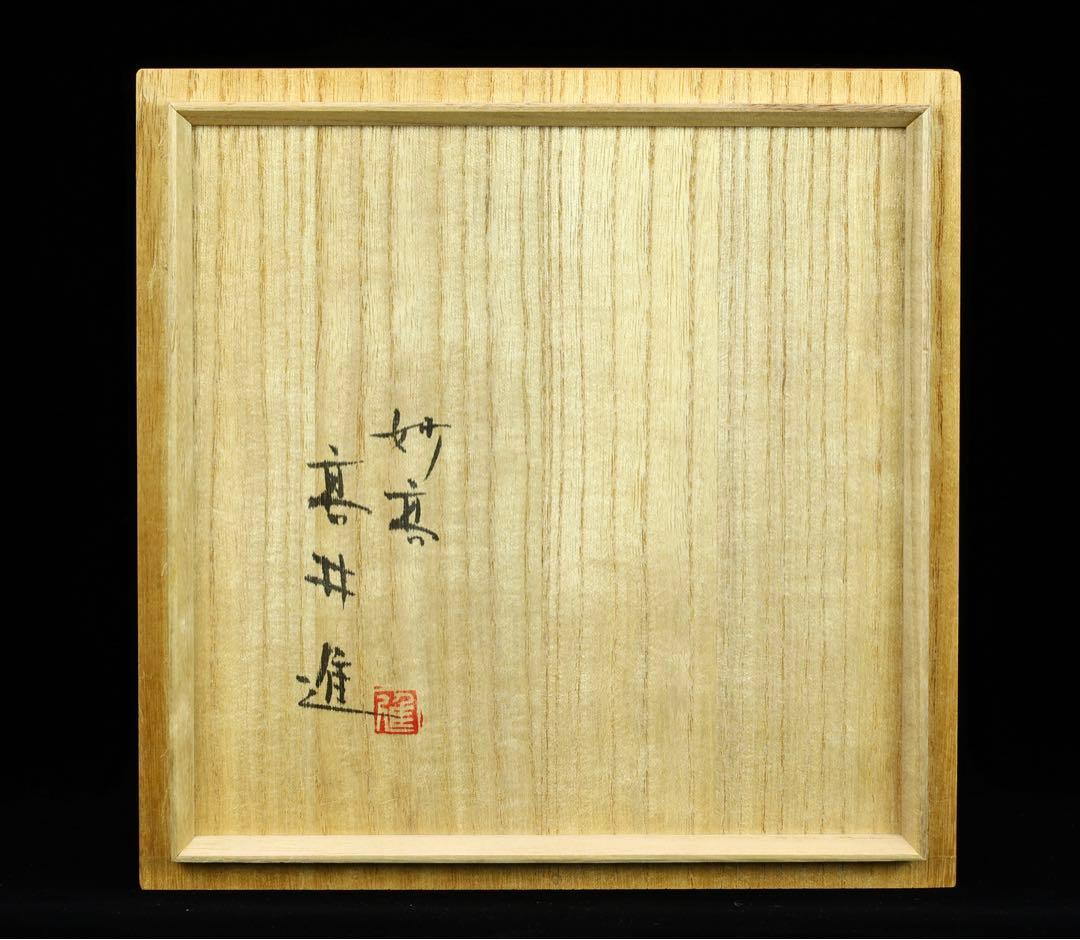 妙高
高井進
進